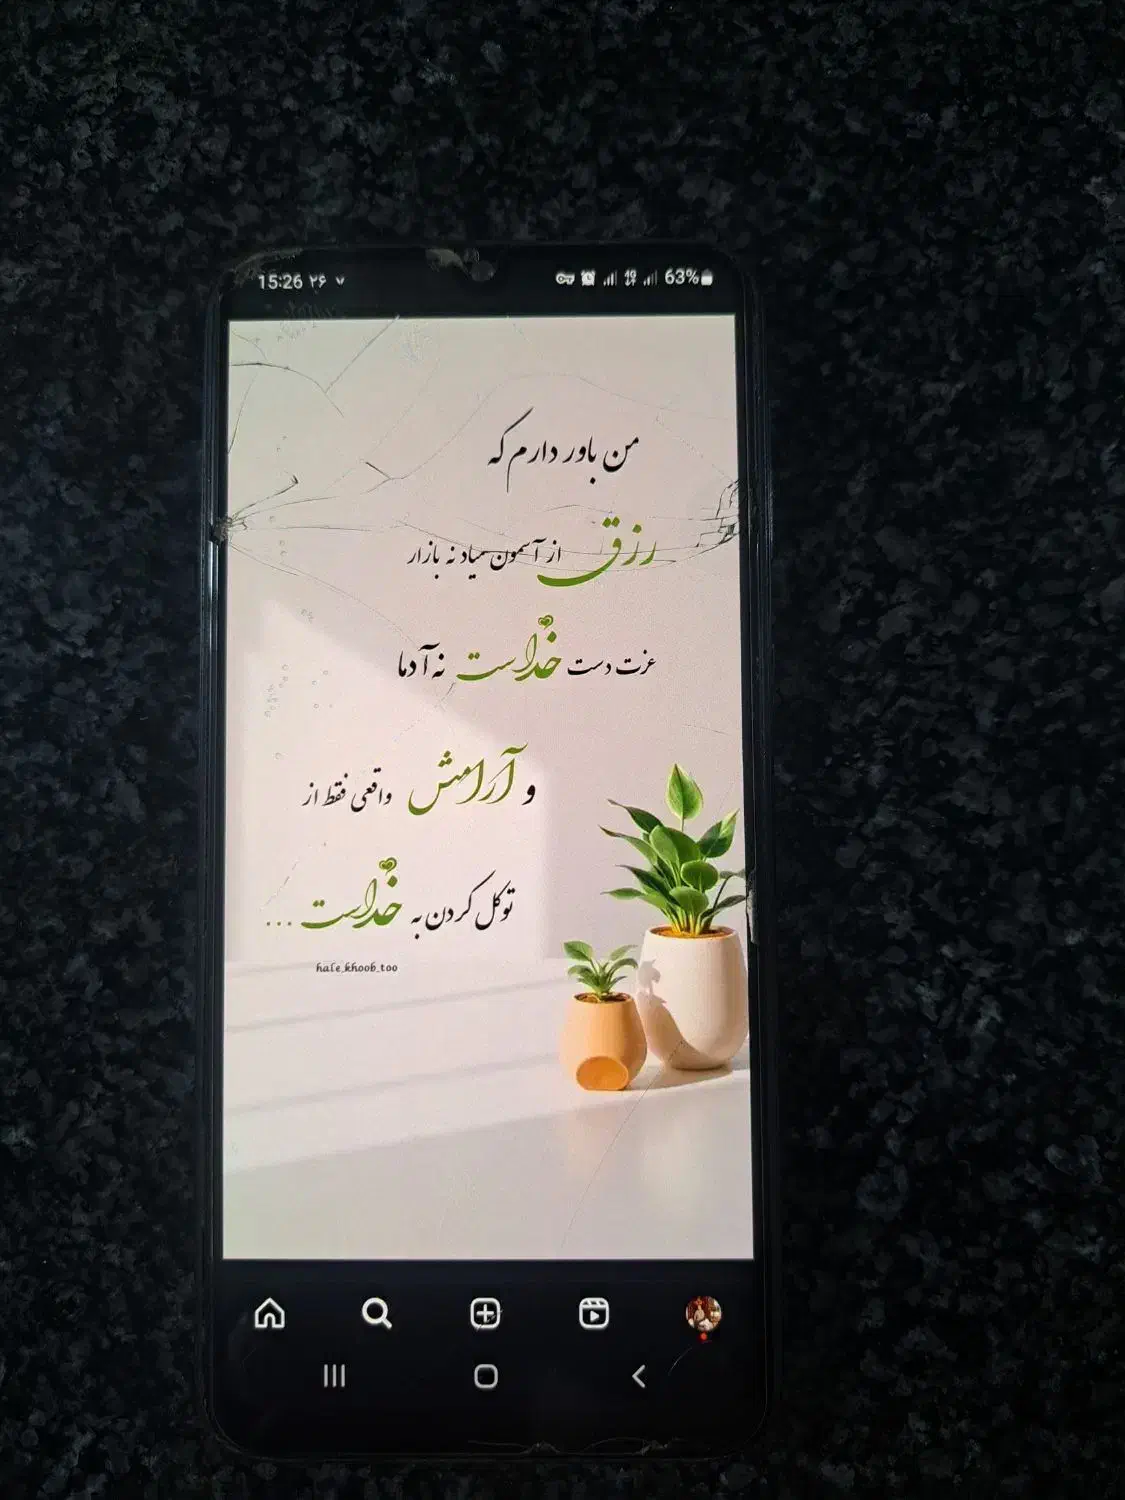 15:26 ۲۶
4G
63%
من باور دارم که
رزق از آسمون میاد نه بازار
عزت دست خداست نه آدما
و آرامش واقعی فقط از
توکل کردن به خداست ...
hale_khoob_too